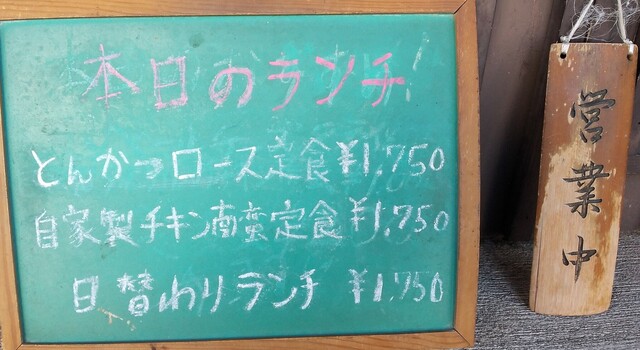 本日のランチ
とんかつロース定食 ¥1,750
自家製チキン南蛮定食 ¥1,750
日替わりランチ ¥1,750
営業中